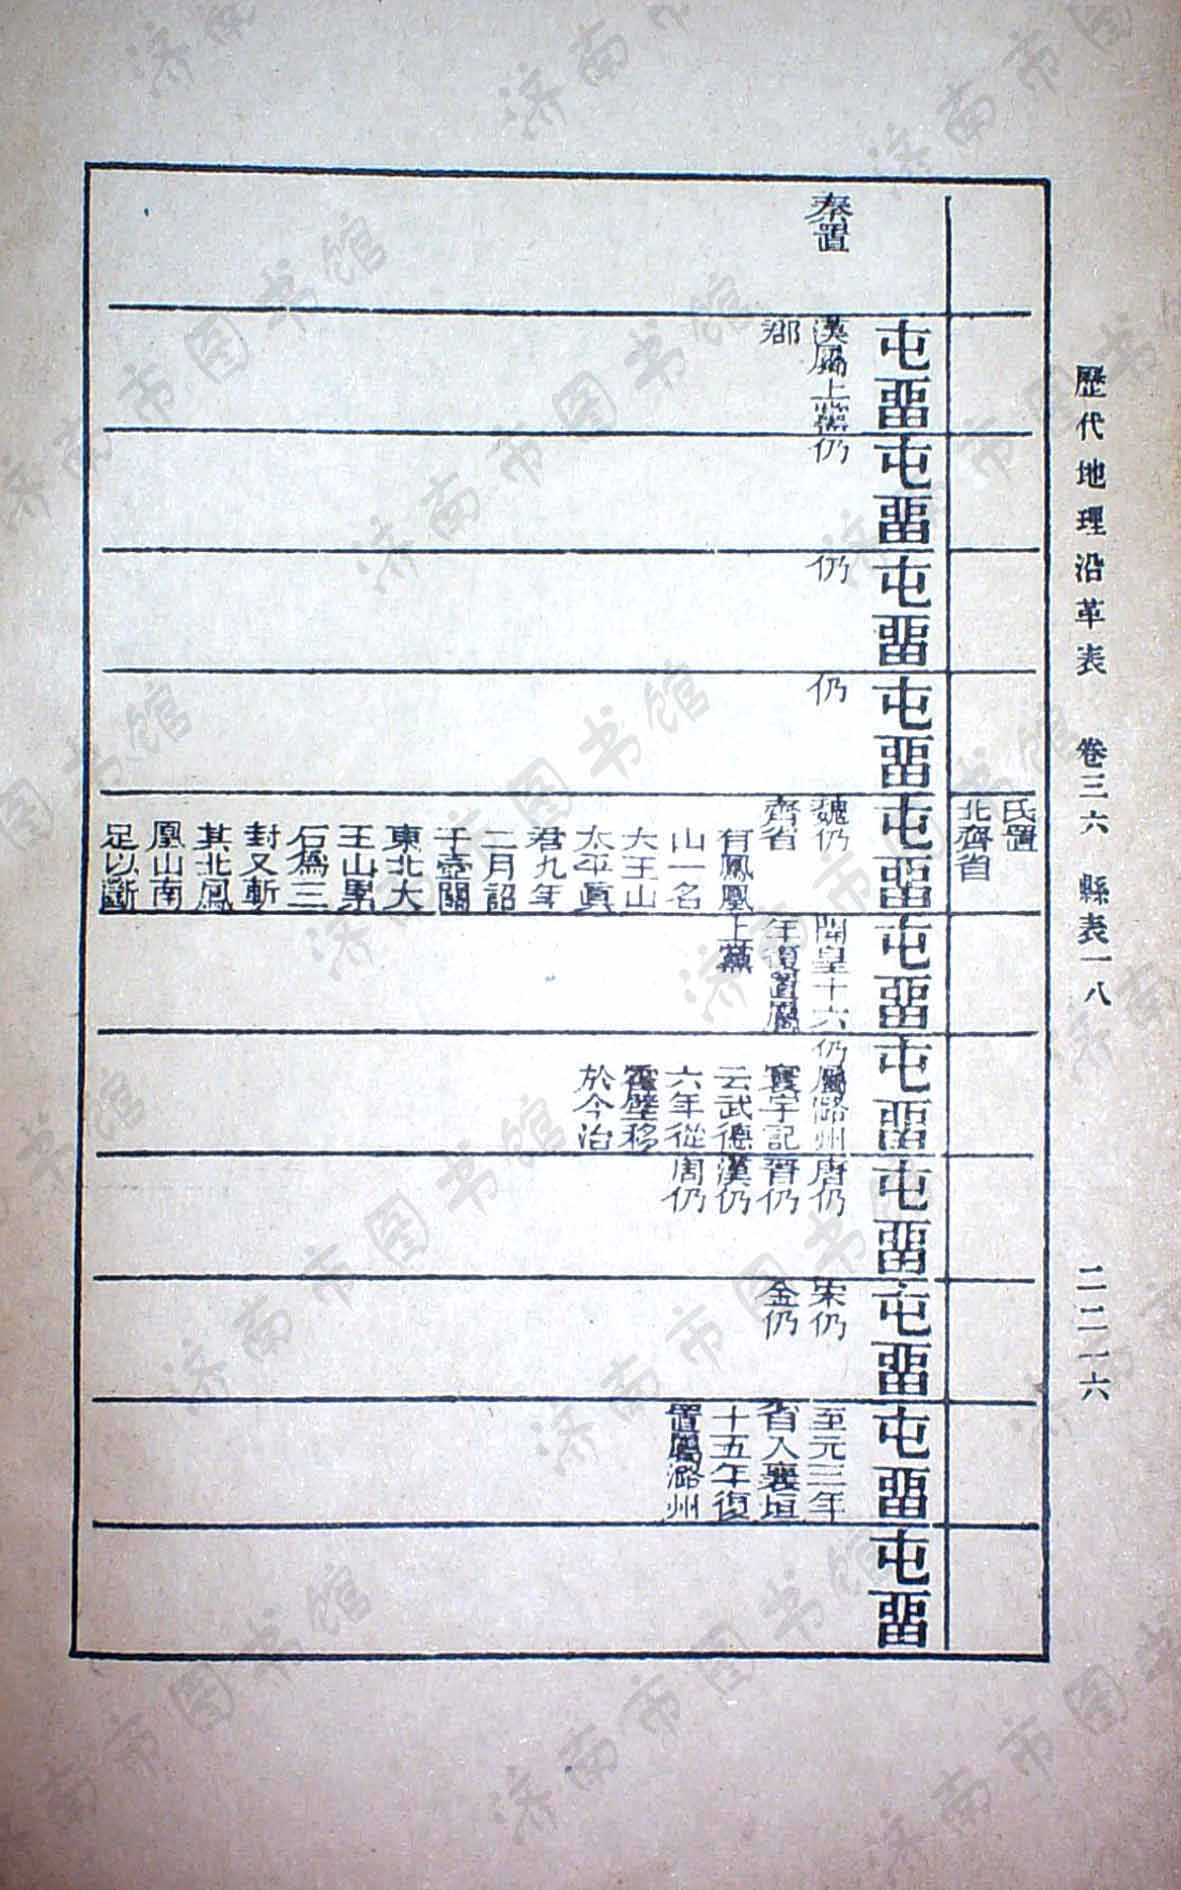 歷代地理沿革表 卷三六 縣表一八 二二一六
氏置
北齊省
秦置
屯畱
漢屬上黨
郡
屯畱
仍
屯畱
仍
屯畱
仍
屯畱
魏仍
齊省
有鳳凰
山一名
大王山
太平眞
君九年
二月詔
于壺關
東北大
王山累
石爲三
封又斬
其北鳳
凰山南
足以斷
屯畱
開皇十六
年復置屬
上黨
屯畱
仍屬潞州
寰宇記
云武德
六年從
霍壁移
於今治
屯畱
唐仍
晉仍
漢仍
周仍
屯畱
宋仍
金仍
屯畱
至元三年
省入襄垣
十五年復
置屬潞州
屯畱
济南市图书馆